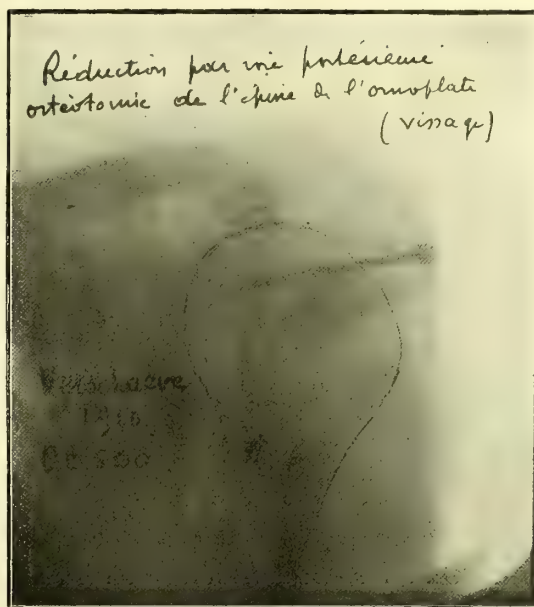 Réduction par voie postérieure
ostéotomie de l'épine de l'omoplate
(vissage)
1916